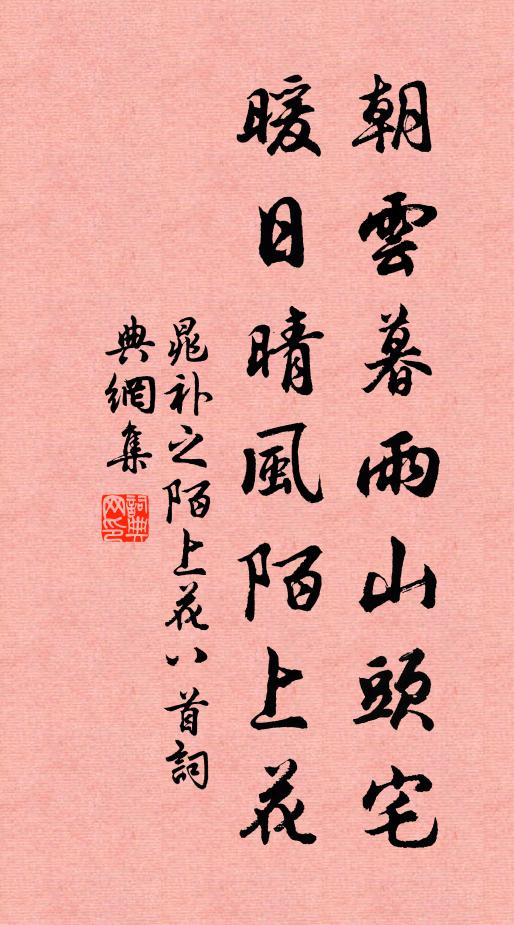 朝雲暮雨山頭宅
暖日晴風陌上花
晁補之陌上花八首詞
典網集
詞典網印